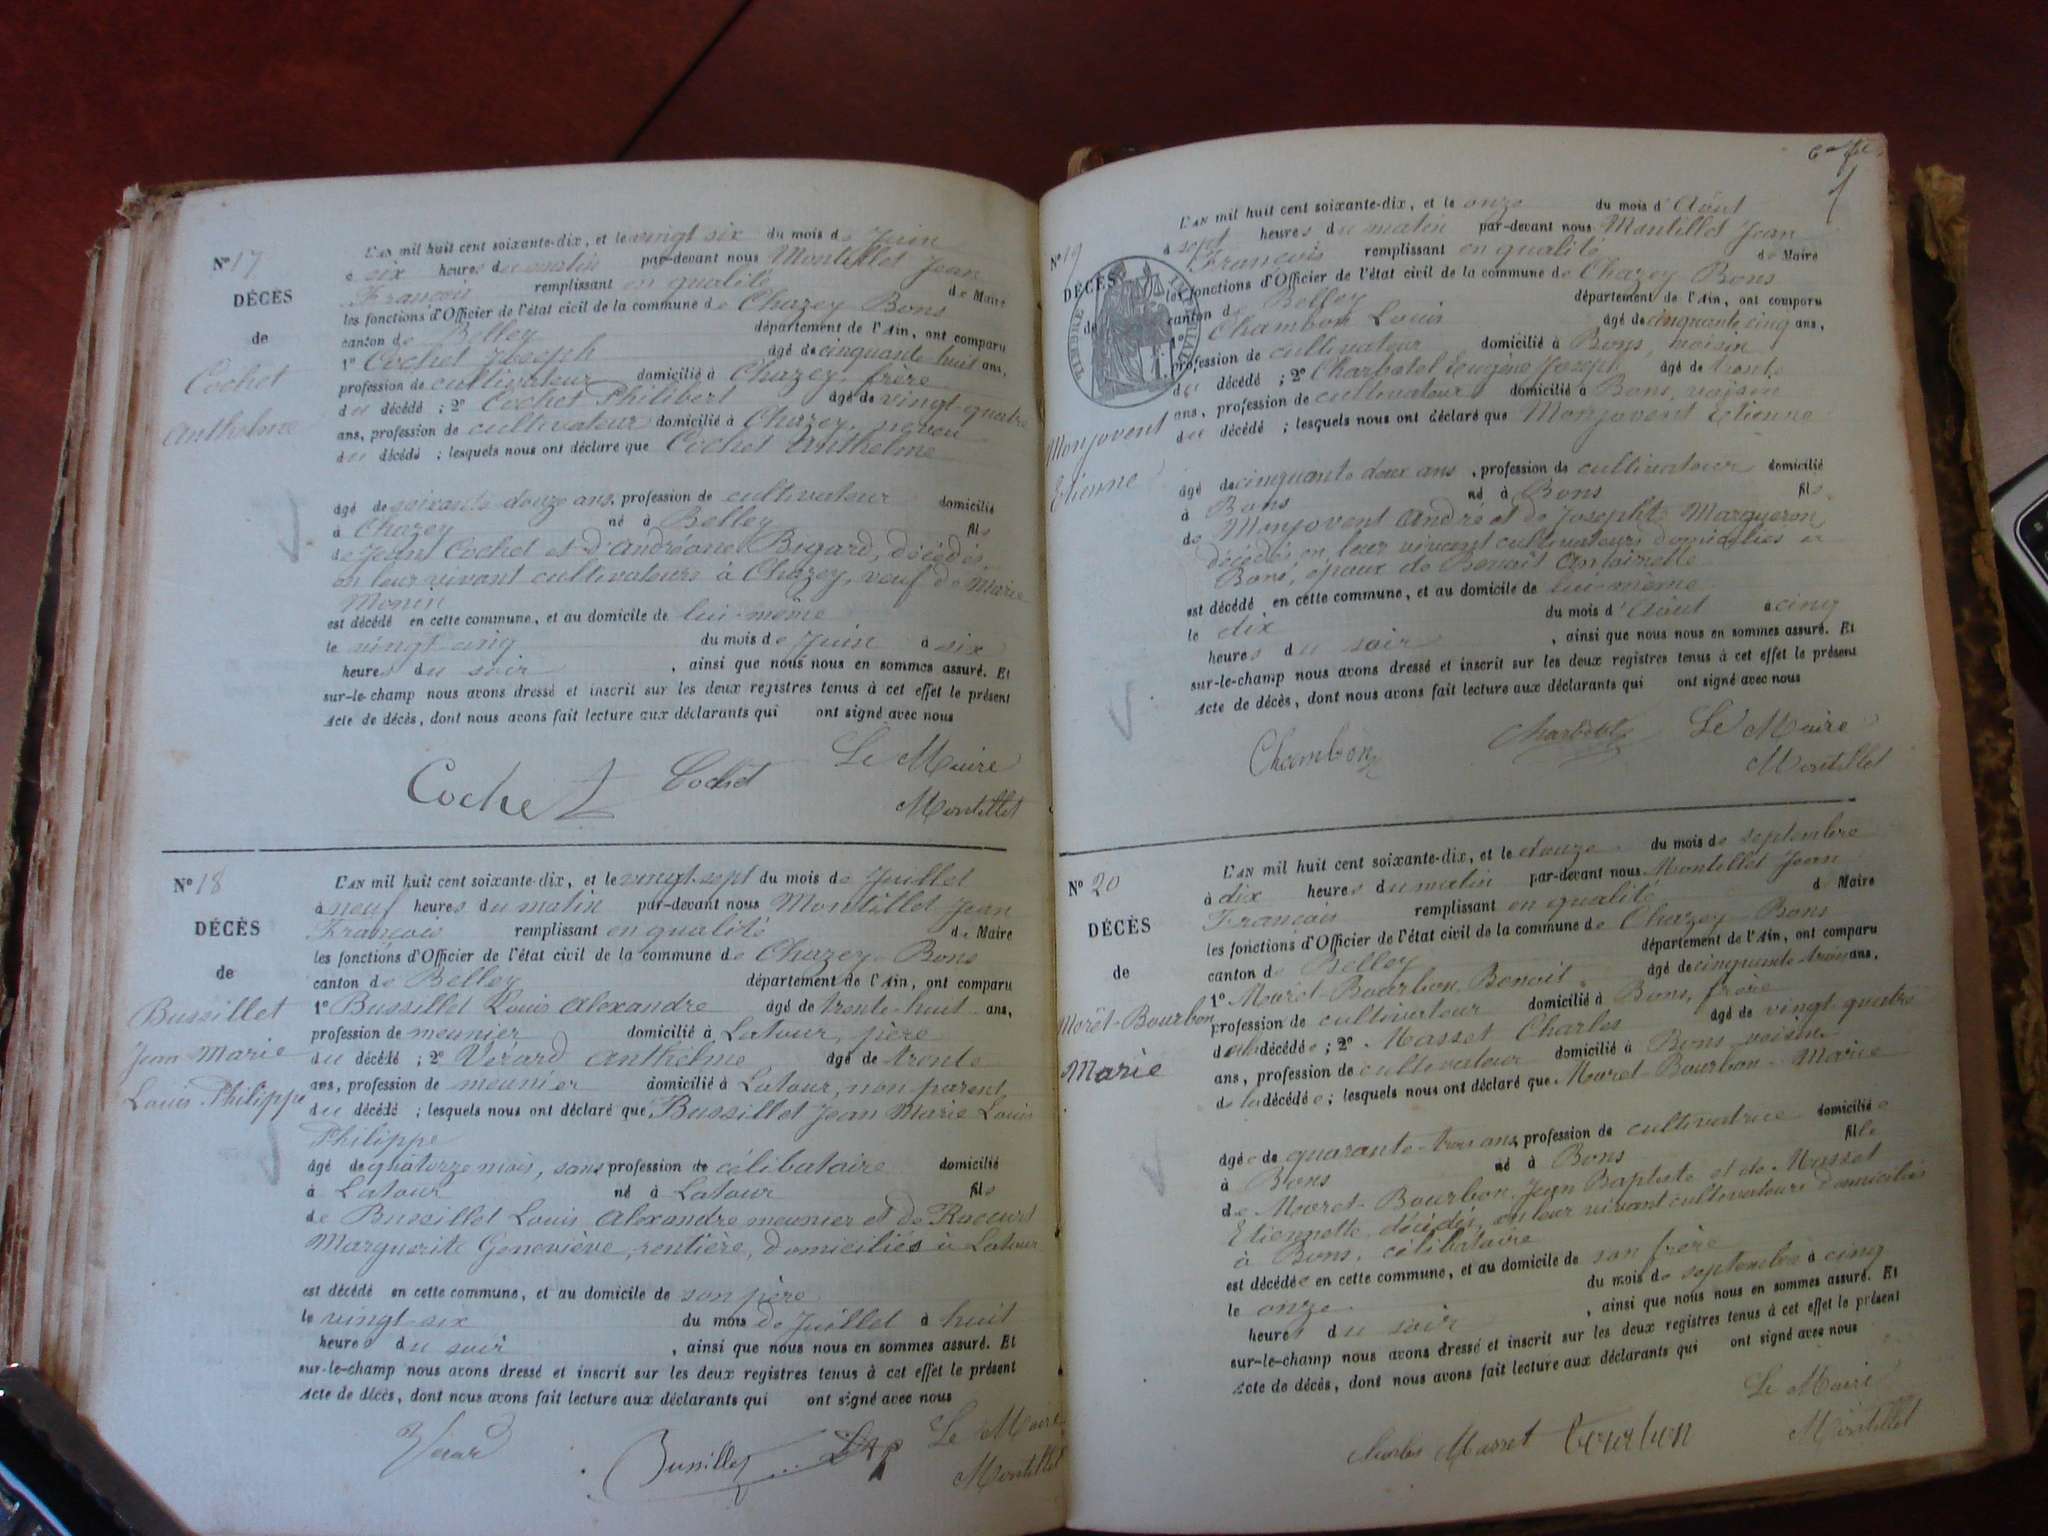 N° 17
DÉCÈS
de
Cochet
Anthelme
L'AN mil huit cent soixante-dix, et le vingt six du mois de Juin
à six heures du matin par-devant nous Montillet Jean
François remplissant en qualité de Maire
les fonctions d'Officier de l'état civil de la commune de Chazey Bons
canton de Belley département de l'Ain, ont comparu
1° Cochet Joseph âgé de cinquante huit ans,
profession de cultivateur domicilié à Chazey, frère
du décédé ; 2° Cochet Philibert âgé de vingt-quatre
ans, profession de cultivateur domicilié à Chazey, neveu
du décédé ; lesquels nous ont déclaré que Cochet Anthelme
âgé de soixante douze ans, profession de cultivateur domicilié
à Chazey né à Belley fils
de Jean Cochet et d'Andréane Bigard, décédés
en leur vivant cultivateurs à Chazey, veuf de Marie
Monin
est décédé en cette commune, et au domicile de lui-même
le vingt-cinq du mois de Juin à six
heures du soir , ainsi que nous nous en sommes assuré. Et
sur-le-champ nous avons dressé et inscrit sur les deux registres tenus à cet effet le présent
Acte de décès, dont nous avons fait lecture aux déclarants qui ont signé avec nous
Cochet Cochet Le Maire
Montillet
N° 18
DÉCÈS
de
Bussillet
Jean Marie
Louis Philippe
L'AN mil huit cent soixante-dix, et le vingt-sept du mois de Juillet
à neuf heures du matin par-devant nous Montillet Jean
François remplissant en qualité de Maire
les fonctions d'Officier de l'état civil de la commune de Chazey-Bons
canton de Belley département de l'Ain, ont comparu
1° Bussillet Louis Alexandre âgé de trente-huit ans,
profession de meunier domicilié à Latour, père
du décédé ; 2° Vérard Anthelme âgé de trente
ans, profession de meunier domicilié à Latour, non parent
du décédé ; lesquels nous ont déclaré que Bussillet Jean Marie Louis
Philippe
âgé de quatorze mois, sans profession de célibataire domicilié
à Latour né à Latour fils
de Bussillet Louis Alexandre meunier et de
Marguerite Geneviève, rentière, domiciliés à Latour
est décédé en cette commune, et au domicile de son père
le vingt-six du mois de Juillet à huit
heures du soir , ainsi que nous nous en sommes assuré. Et
sur-le-champ nous avons dressé et inscrit sur les deux registres tenus à cet effet le présent
Acte de décès, dont nous avons fait lecture aux déclarants qui ont signé avec nous
Vérard Bussillet Le Maire
Montillet
N° 19
DÉCÈS
de
TIMBRE
Monjovent
Etienne
L'AN mil huit cent soixante-dix, et le onze du mois d'Août
à sept heures du matin par-devant nous Montillet Jean
François remplissant en qualité de Maire
les fonctions d'Officier de l'état civil de la commune de Chazey Bons
canton de Belley département de l'Ain, ont comparu
1° Chambon Louis âgé de cinquante cinq ans,
profession de cultivateur domicilié à Bons, voisin
du décédé ; 2° Charbotel Eugène Joseph âgé de trente
ans, profession de cultivateur domicilié à Bons, voisin
du décédé ; lesquels nous ont déclaré que Monjovent Etienne
âgé de cinquante deux ans, profession de cultivateur domicilié
à Bons né à Bons fils
de Monjovent André et de Josephte Marqueron
décédés en leur vivant cultivateurs domiciliés à
Bons, époux de Benoît Antoinette
est décédé en cette commune, et au domicile de lui-même
le dix du mois d'Août à cinq
heures du soir , ainsi que nous nous en sommes assuré. Et
sur-le-champ nous avons dressé et inscrit sur les deux registres tenus à cet effet le présent
Acte de décès, dont nous avons fait lecture aux déclarants qui ont signé avec nous
Chambon Charbotel Le Maire
Montillet
N° 20
DÉCÈS
de
Moret-Bourbon
Marie
L'AN mil huit cent soixante-dix, et le douze du mois de septembre
à dix heures du matin par-devant nous Montillet Jean
François remplissant en qualité de Maire
les fonctions d'Officier de l'état civil de la commune de Chazey-Bons
canton de Belley département de l'Ain, ont comparu
1° Moret-Bourbon Benoit âgé de cinquante trois ans,
profession de cultivateur domicilié à Bons, frère
de la décédée ; 2° Masset Charles âgé de vingt-quatre
ans, profession de cultivateur domicilié à Bons, voisin
de la décédée ; lesquels nous ont déclaré que Moret-Bourbon Marie
âgée de quarante-trois ans, profession de cultivatrice domiciliée
à Bons né à Bons fille
de Moret-Bourbon Jean Baptiste et de Masset
Etiennette, décédés, en leur vivant cultivateurs domiciliés
à Bons, célibataire
est décédée en cette commune, et au domicile de son frère
le onze du mois de septembre à cinq
heures du soir , ainsi que nous nous en sommes assuré. Et
sur-le-champ nous avons dressé et inscrit sur les deux registres tenus à cet effet le présent
Acte de décès, dont nous avons fait lecture aux déclarants qui ont signé avec nous
Charles Masset Bourbon Le Maire
Montillet